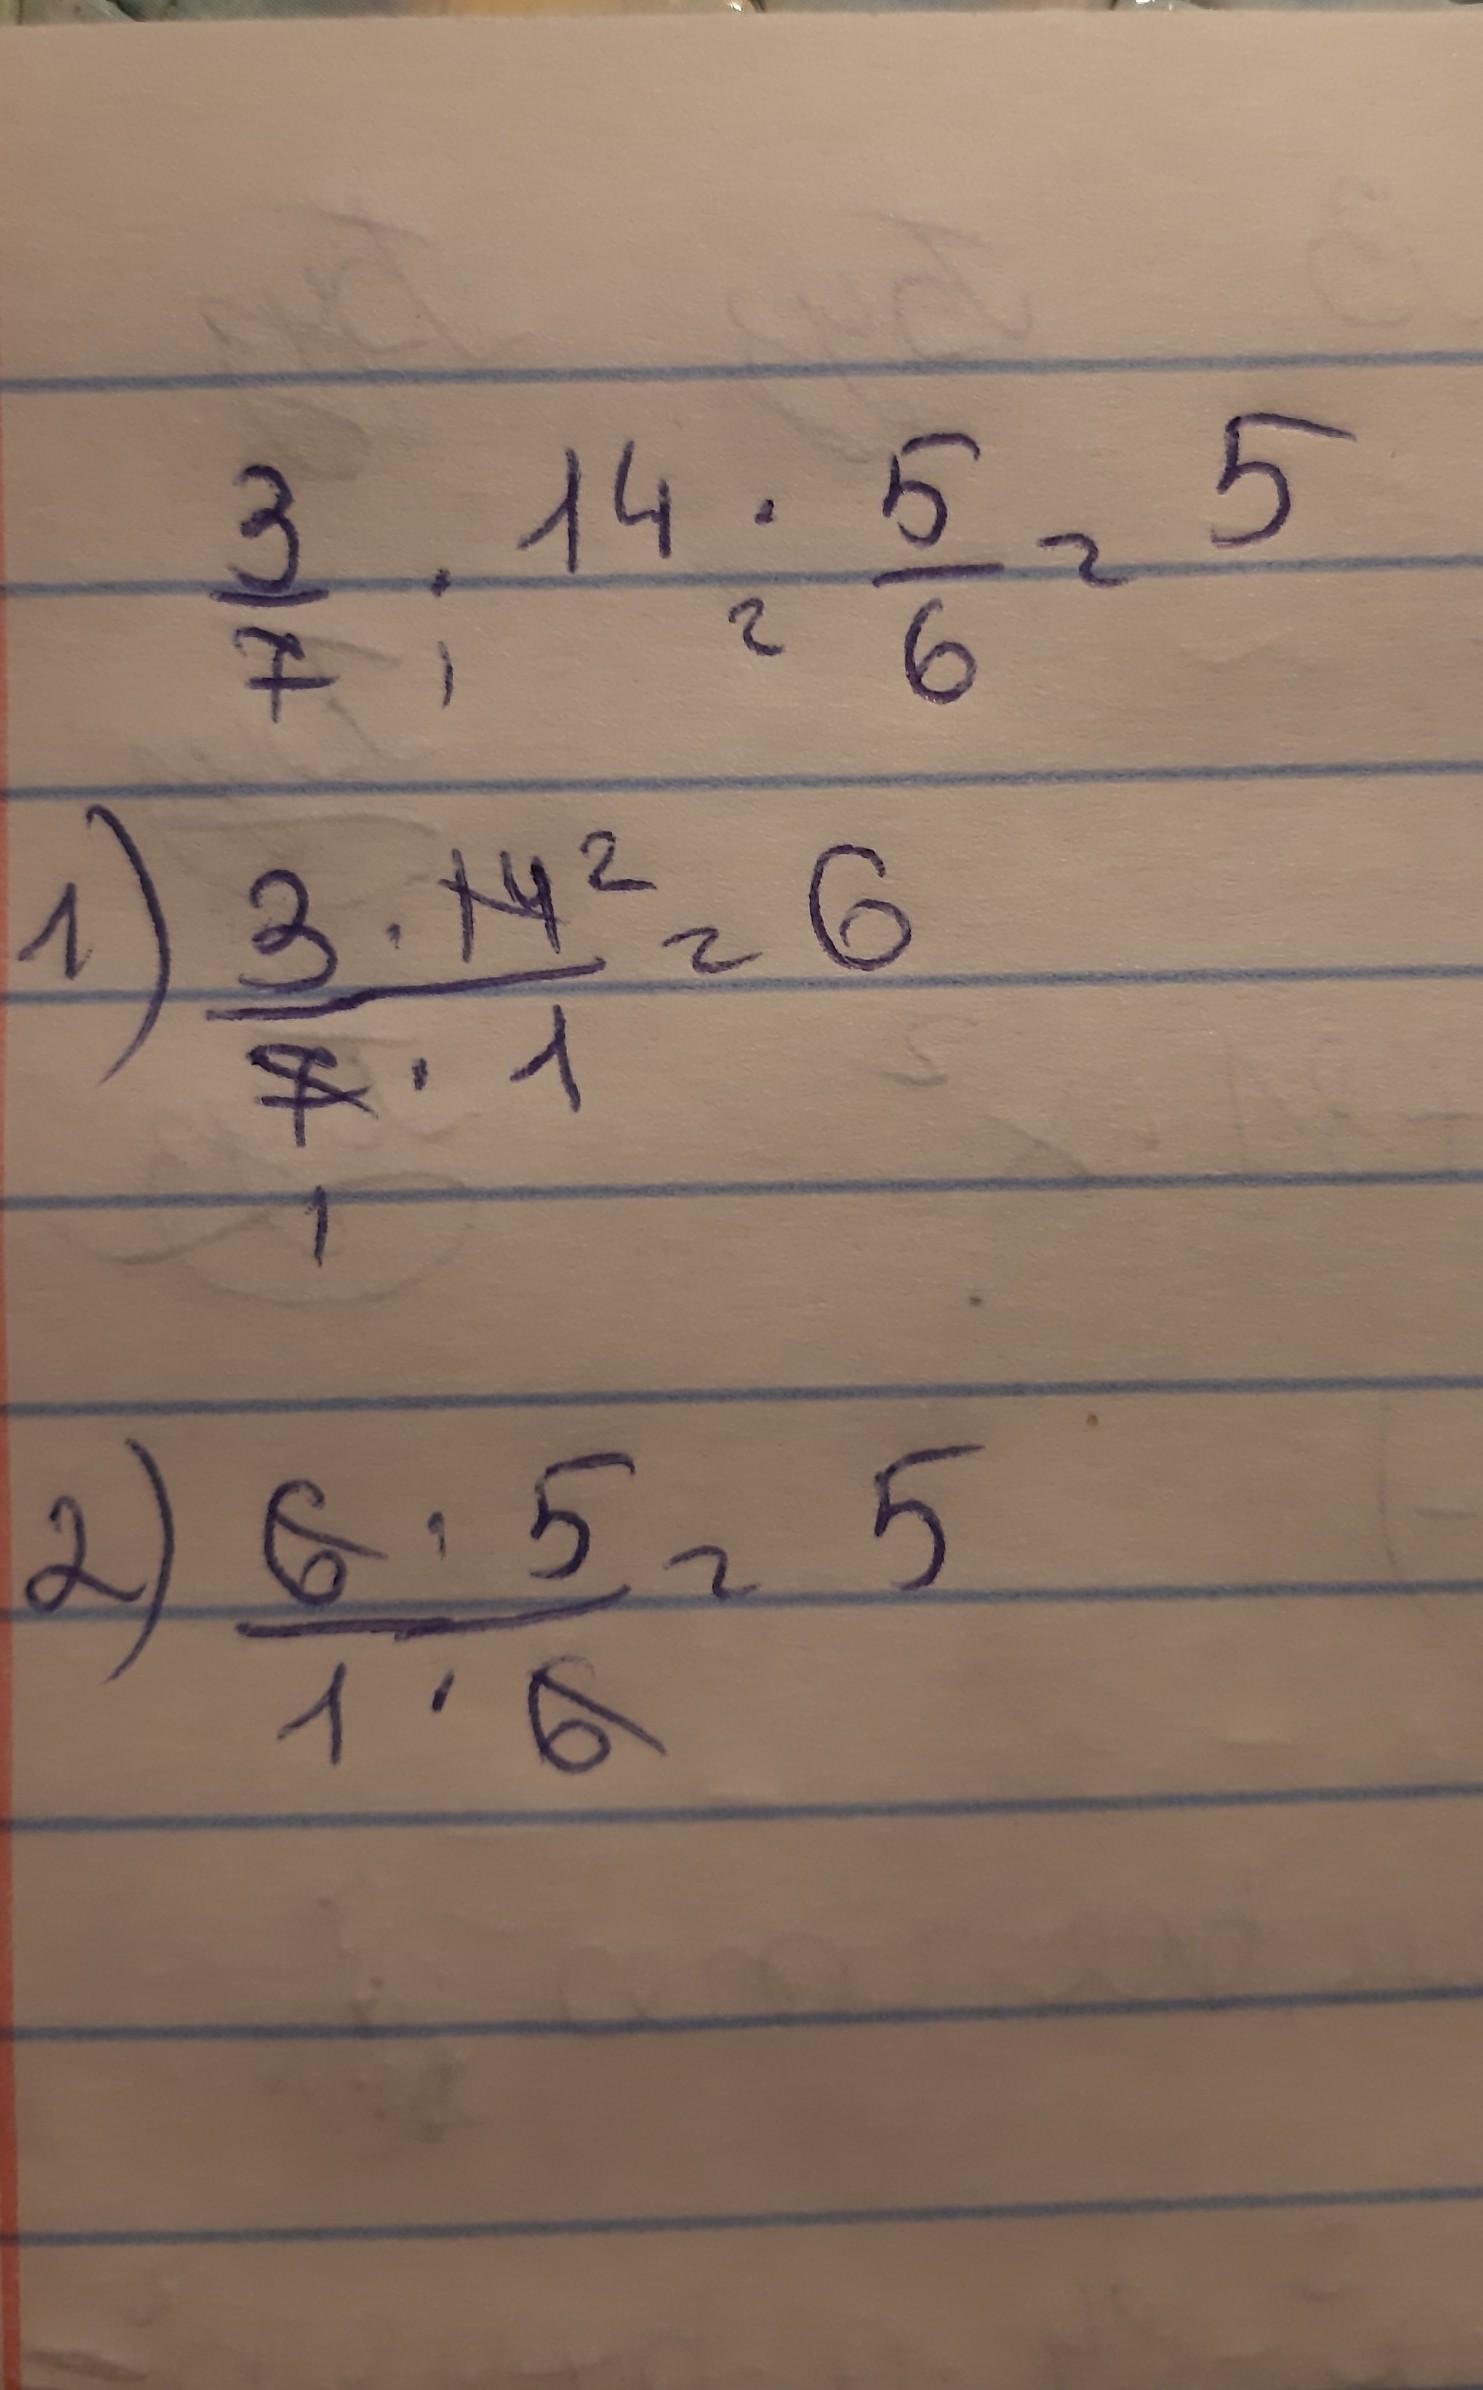 3/7 · 14 · 5/6 = 5
1 2
1) 3 · 14² / 7 · 1 = 6
1
2) 6 · 5 / 1 · 6 = 5